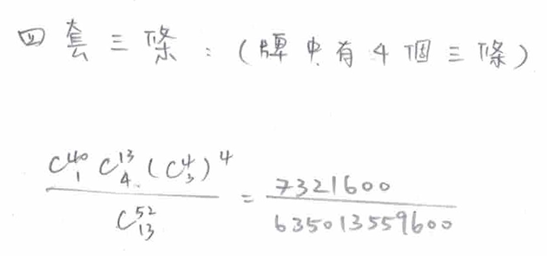 四套三條：(牌中有4個三條)
C^{40}_{1} C^{13}_{4} (C^{4}_{3})^{4} / C^{52}_{13} = 7321600 / 635013559600